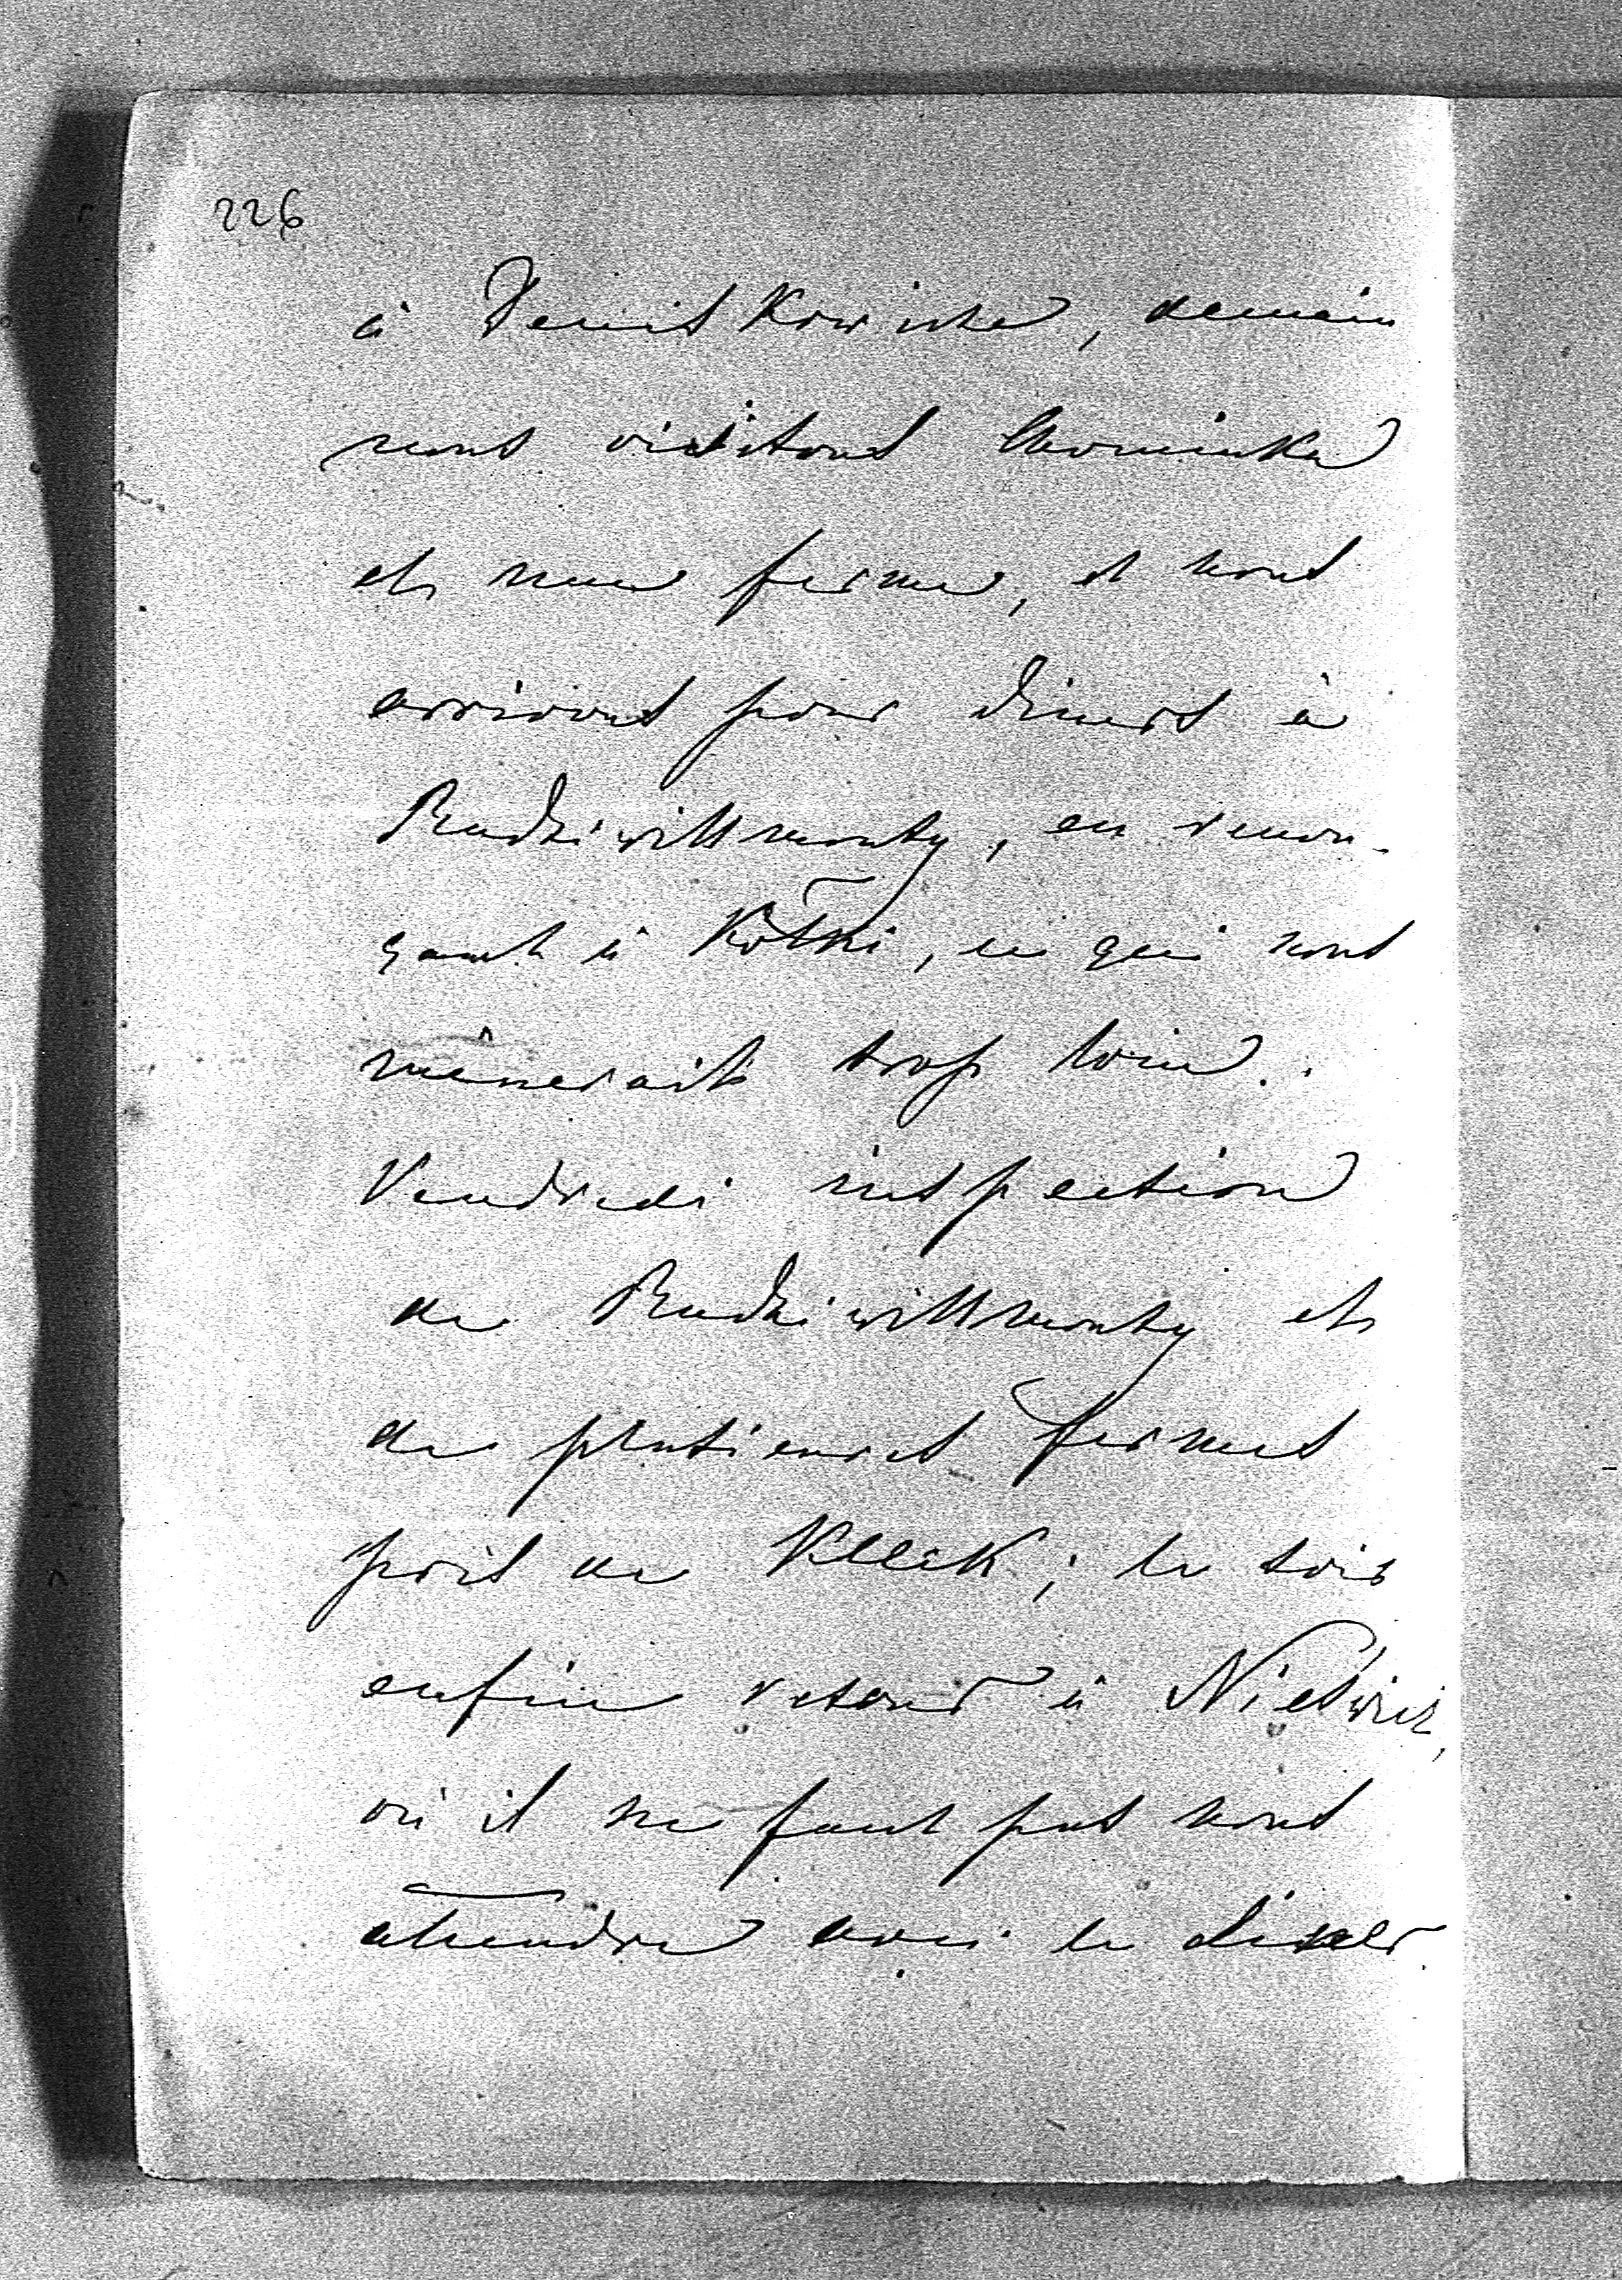 226
à Deniskowicze, demain
nous visitons Chominka
et une ferme, et nous
arrivons pour diner à
Radziwillmonty, en renon-
çant à Kotki, ce qui nous
mênerait trop loin.
Vendredi inspection
de Radziwillmonty et
de plusieurs fermes
près de Kleck; le soir
enfin retour à Nieswież,
où il ne faut pas nous
attendre avec le diner